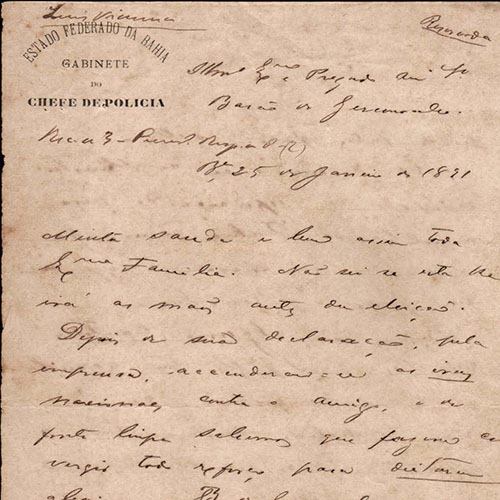 Luis Vianna
Reservada
ESTADO FEDERADO DA BAHIA
GABINETE
DO
CHEFE DE POLICIA
Illmo Exmo e Prezado Amº
Barão de Geremoabo.
Bª 25 de Janeiro de 1891
Muita saude e bem assim toda
Exma Familia. Não sei se esta lhe
irá as mãos antes da eleição.
Depois de sua declaração, pela
imprensa, accenderam-se as iras
contra o amigo, e de
fonte limpa sabemos que fazem
vergir todo esforço para